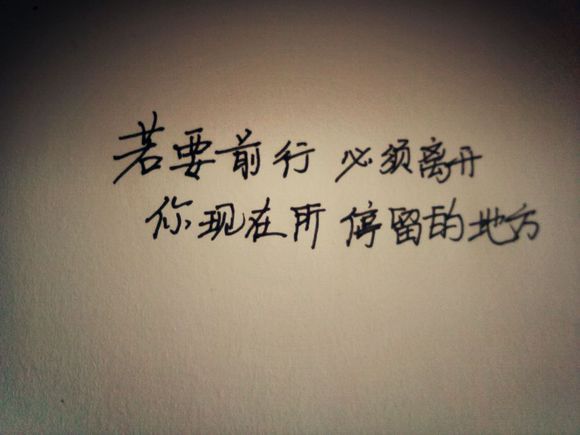 若要前行 必须离开
你现在所 停留的地方